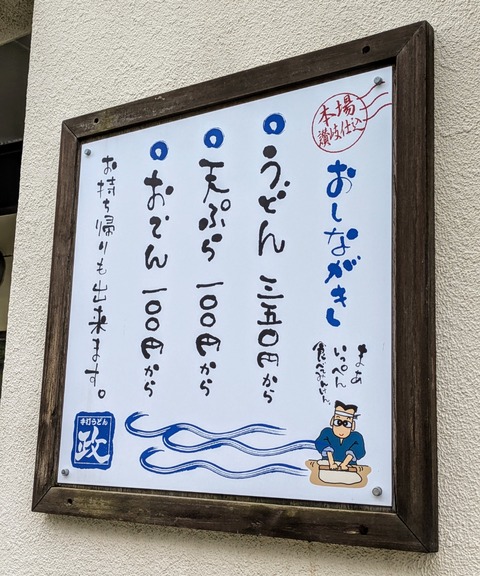 本場
讃岐仕込
おしながき
うどん 三五〇円から
天ぷら 一〇〇円から
おでん 一〇〇円から
お持ち帰りも出来ます。
まあ
いっぺん
手打うどん
政